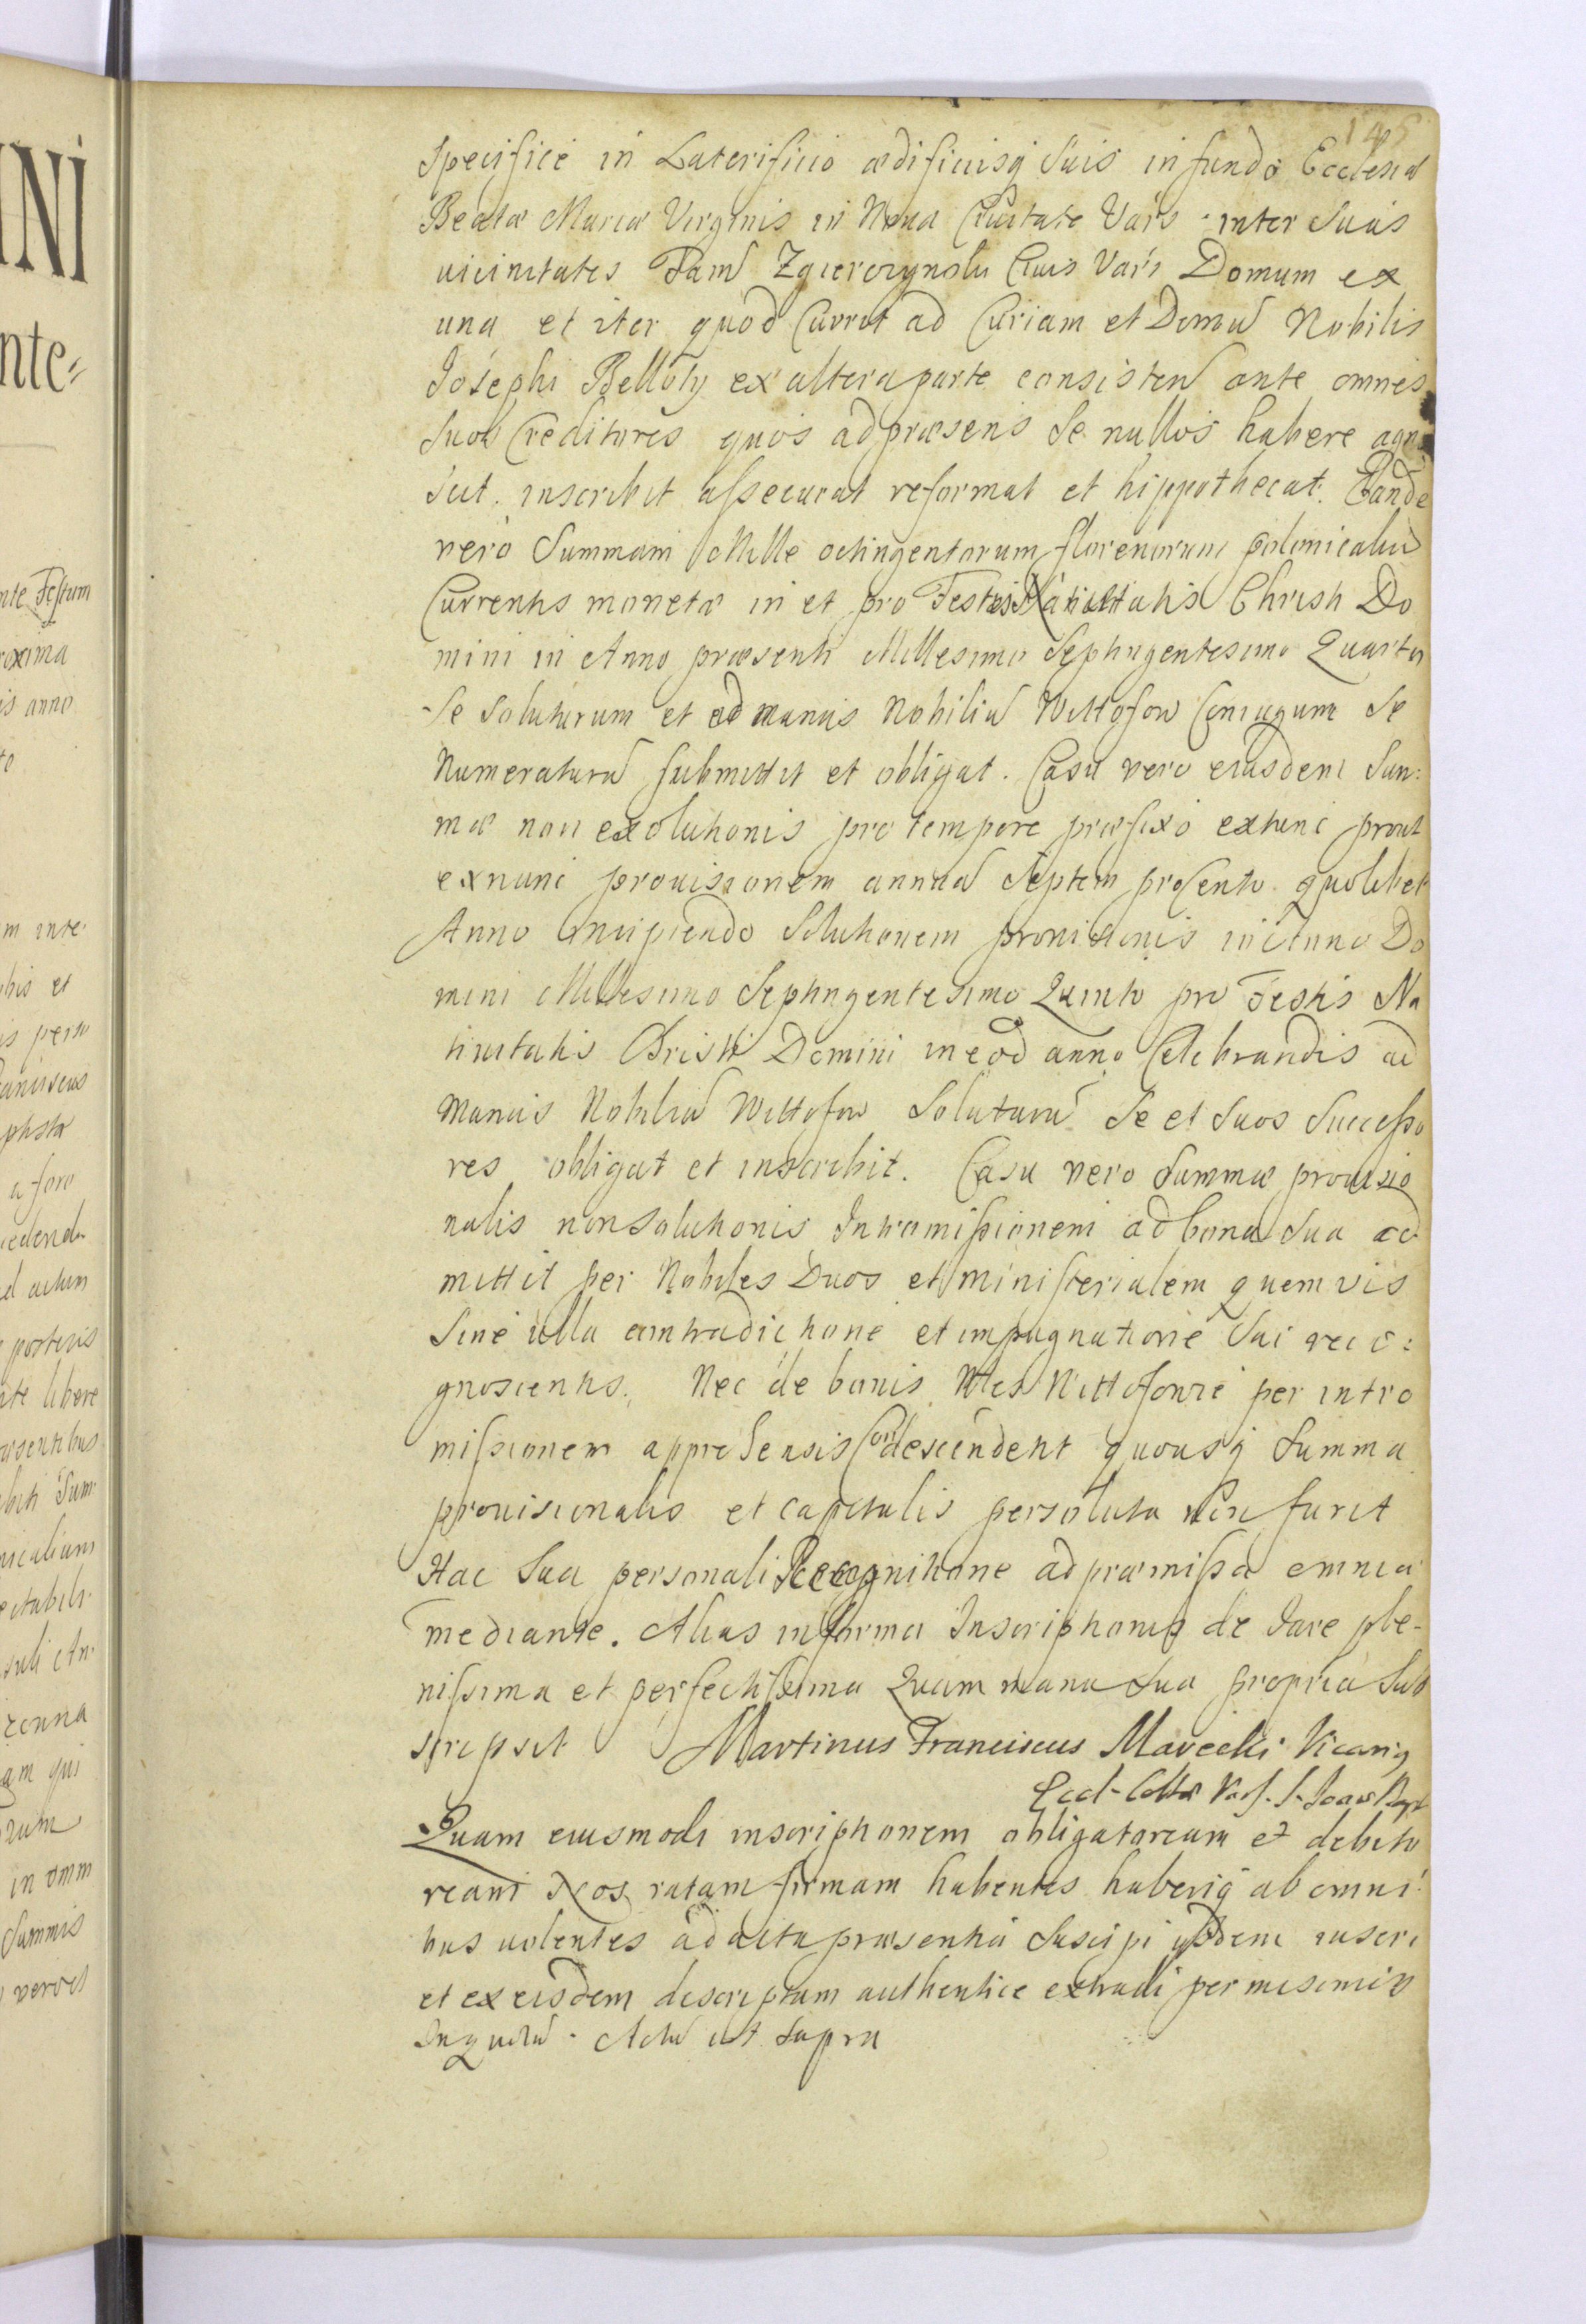 145
Specifice in Laterificio ædificiisq suis in fundo Ecclesiæ
Beatæ Mariæ Virginis in Nova Civitate Vars inter suas
vicinitates Fam Zgierczynski Civis Vars Domum ex
una et iter quod Currit ad Curiam et Domu Nobilis
Josephi Bellotÿ ex altera parte consisten ante omnes
suos Creditores quos ad præsens se nullos habere agno
scit. inscribit assecurat reformat et hippothecat. Eande
vero Summam Mille octingentorum florenorum polonicaliu
Currentis monetæ in et pro Festis Nativitatis Christi Do
mini in Anno præsenti Millesimo Septingentesimo Quarto
se soluturum et ad manus Nobiliu Wittofow Coniugum se
Numeraturu submittit et obligat. Casu vero eiusdem Sum:
mæ non exolutionis pro tempore præfixo extunc prout
exnunc provisionem annua Septem pro Cento quolibet
Anno incipiendo Solutionem provisionis in Anno Do
mini Millesimo Septingentesimo Quinto pro Festis Na
tivitatis Christi Domini in eod anno Celebrandis ad
manus Nobiliu Wittofow Soluturu se et suos Successo
res obligat et inscribit. Casu vero Summæ provisio
nalis non Solutionis Intromissionem ad bona sua ad
mittit per Nobiles Duos et Ministerialem quemvis
sine ulla contradictione et impugnatione sui reco:
gnoscentis. Nec de bonis Nles Wittofowie per intro
missionem apprehensis Condescendent quousq Summa
provisionalis et capitalis persoluta non fuerit
Hac sua personali Recognitione ad præmissa omnia
mediante. Alias in forma Inscriptionis de Jure ple-
nissima et perfectissima Quam manu sua propria sub
scripsit Martinus Franciscus Marecki Vicarig
Eccl- Collæ Vars. S. Joan Bapt
Quam eiusmodi inscriptionem obligatoriam et debito
riam Nos ratam firmam habentes haberiq ab omni:
bus volentes ad acta præsentia suscipi ijsdem inseri
et ex eisdem descriptam authentice extradi permisimus
Inquan- Actu ut supra